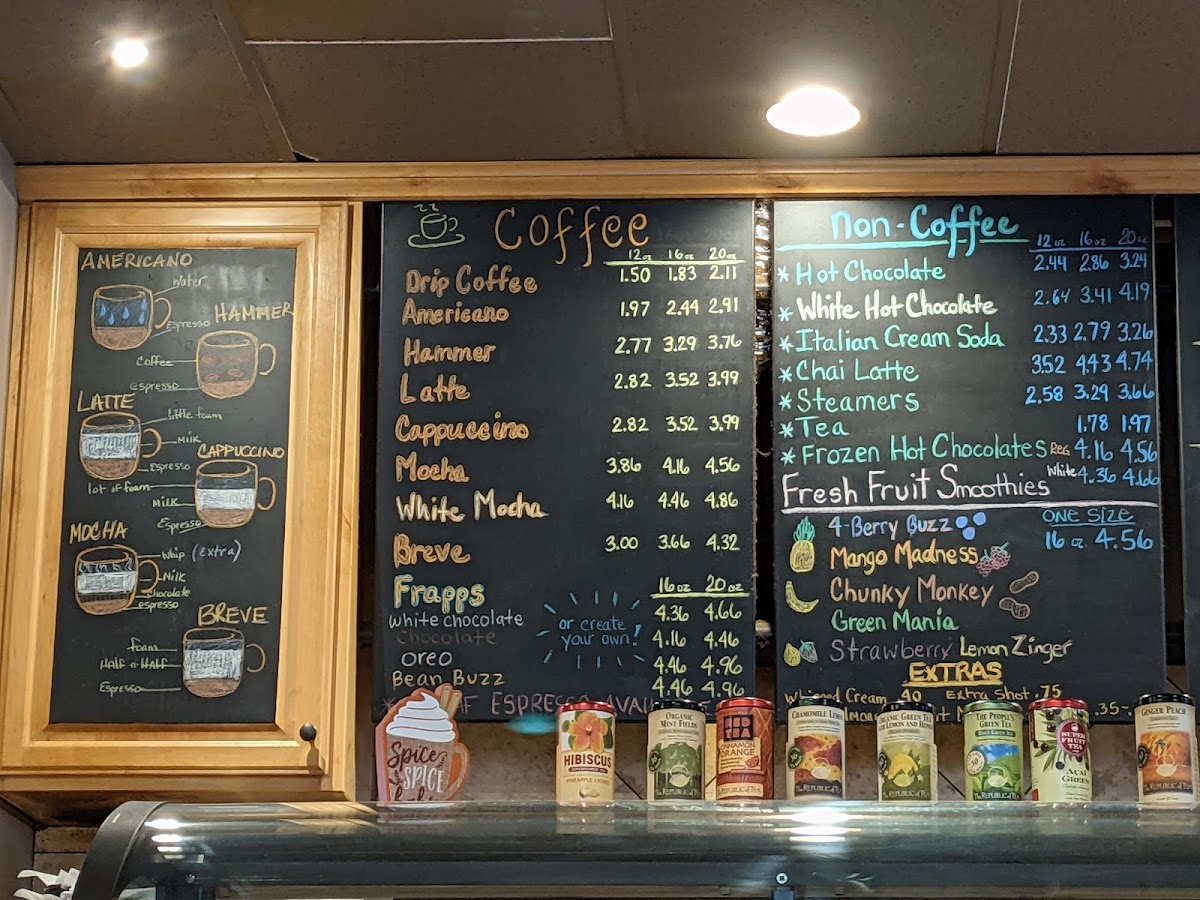 AMERICANO
water
Espresso
HAMMER
Coffee
espresso
LATTE
little foam
milk
Espresso
CAPPUCCINO
lot of foam
Milk
Espresso
MOCHA
Whip (Extra)
Milk
chocolate
espresso
BREVE
foam
Half n Half
Espresso
Coffee
12oz 16oz 20oz
Drip Coffee 1.50 1.83 2.11
Americano 1.97 2.44 2.91
Hammer 2.77 3.29 3.76
Latte 2.82 3.52 3.99
Cappuccino 2.82 3.52 3.99
Mocha 3.86 4.16 4.56
White Mocha 4.16 4.46 4.86
Breve 3.00 3.66 4.32
Frapps 16oz 20oz
white chocolate 4.36 4.66
chocolate 4.16 4.46
oreo 4.46 4.96
Bean Buzz 4.46 4.96
or create
your own!
ESPRESSO
non-Coffee
12oz 16oz 20oz
* Hot Chocolate 2.44 2.86 3.24
* White Hot Chocolate 2.64 3.41 4.19
* Italian Cream Soda 2.33 2.79 3.26
* Chai Latte 3.52 4.43 4.74
* Steamers 2.58 3.29 3.66
* Tea 1.78 1.97
* Frozen Hot Chocolates REG 4.16 4.56
White 4.36 4.66
Fresh Fruit Smoothies
4-Berry Buzz
Mango Madness
Chunky Monkey
Green Mania
Strawberry Lemon Zinger
ONE SIZE
16 oz. 4.56
EXTRAS
Whipped Cream .40 Extra Shot .75
.35
Spice
SPICE
HIBISCUS
PINEAPPLE LYCHEE
ORGANIC
MINT FIELDS
THE REPUBLIC OF TEA
RED
TEA
CINNAMON
ORANGE
CHAMOMILE LEMON
THE REPUBLIC OF TEA
ORGANIC GREEN TEA
LEMON AND HONEY
THE REPUBLIC OF TEA
THE PEOPLE'S
GREEN TEA
THE REPUBLIC OF TEA
SUPER
FRUIT
TEA
ACAI
GREEN
GINGER PEACH
THE REPUBLIC OF TEA